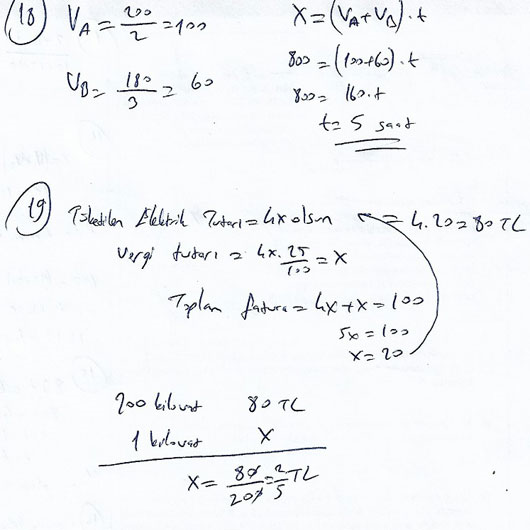 18) V_A = 200/2 = 100
V_B = 180/3 = 60
X = (V_A + V_B) . t
800 = (100+60) . t
800 = 160.t
t = 5 saat
19) Tüketilen Elektrik Tutarı = 4x olsun = 4.20 = 80 TL
Vergi tutarı = 4x . 25/100 = x
Toplam fatura = 4x + x = 100
5x = 100
x = 20
200 kilovat 80 TL
1 kilovat X
X = 80/200 = 2/5 TL